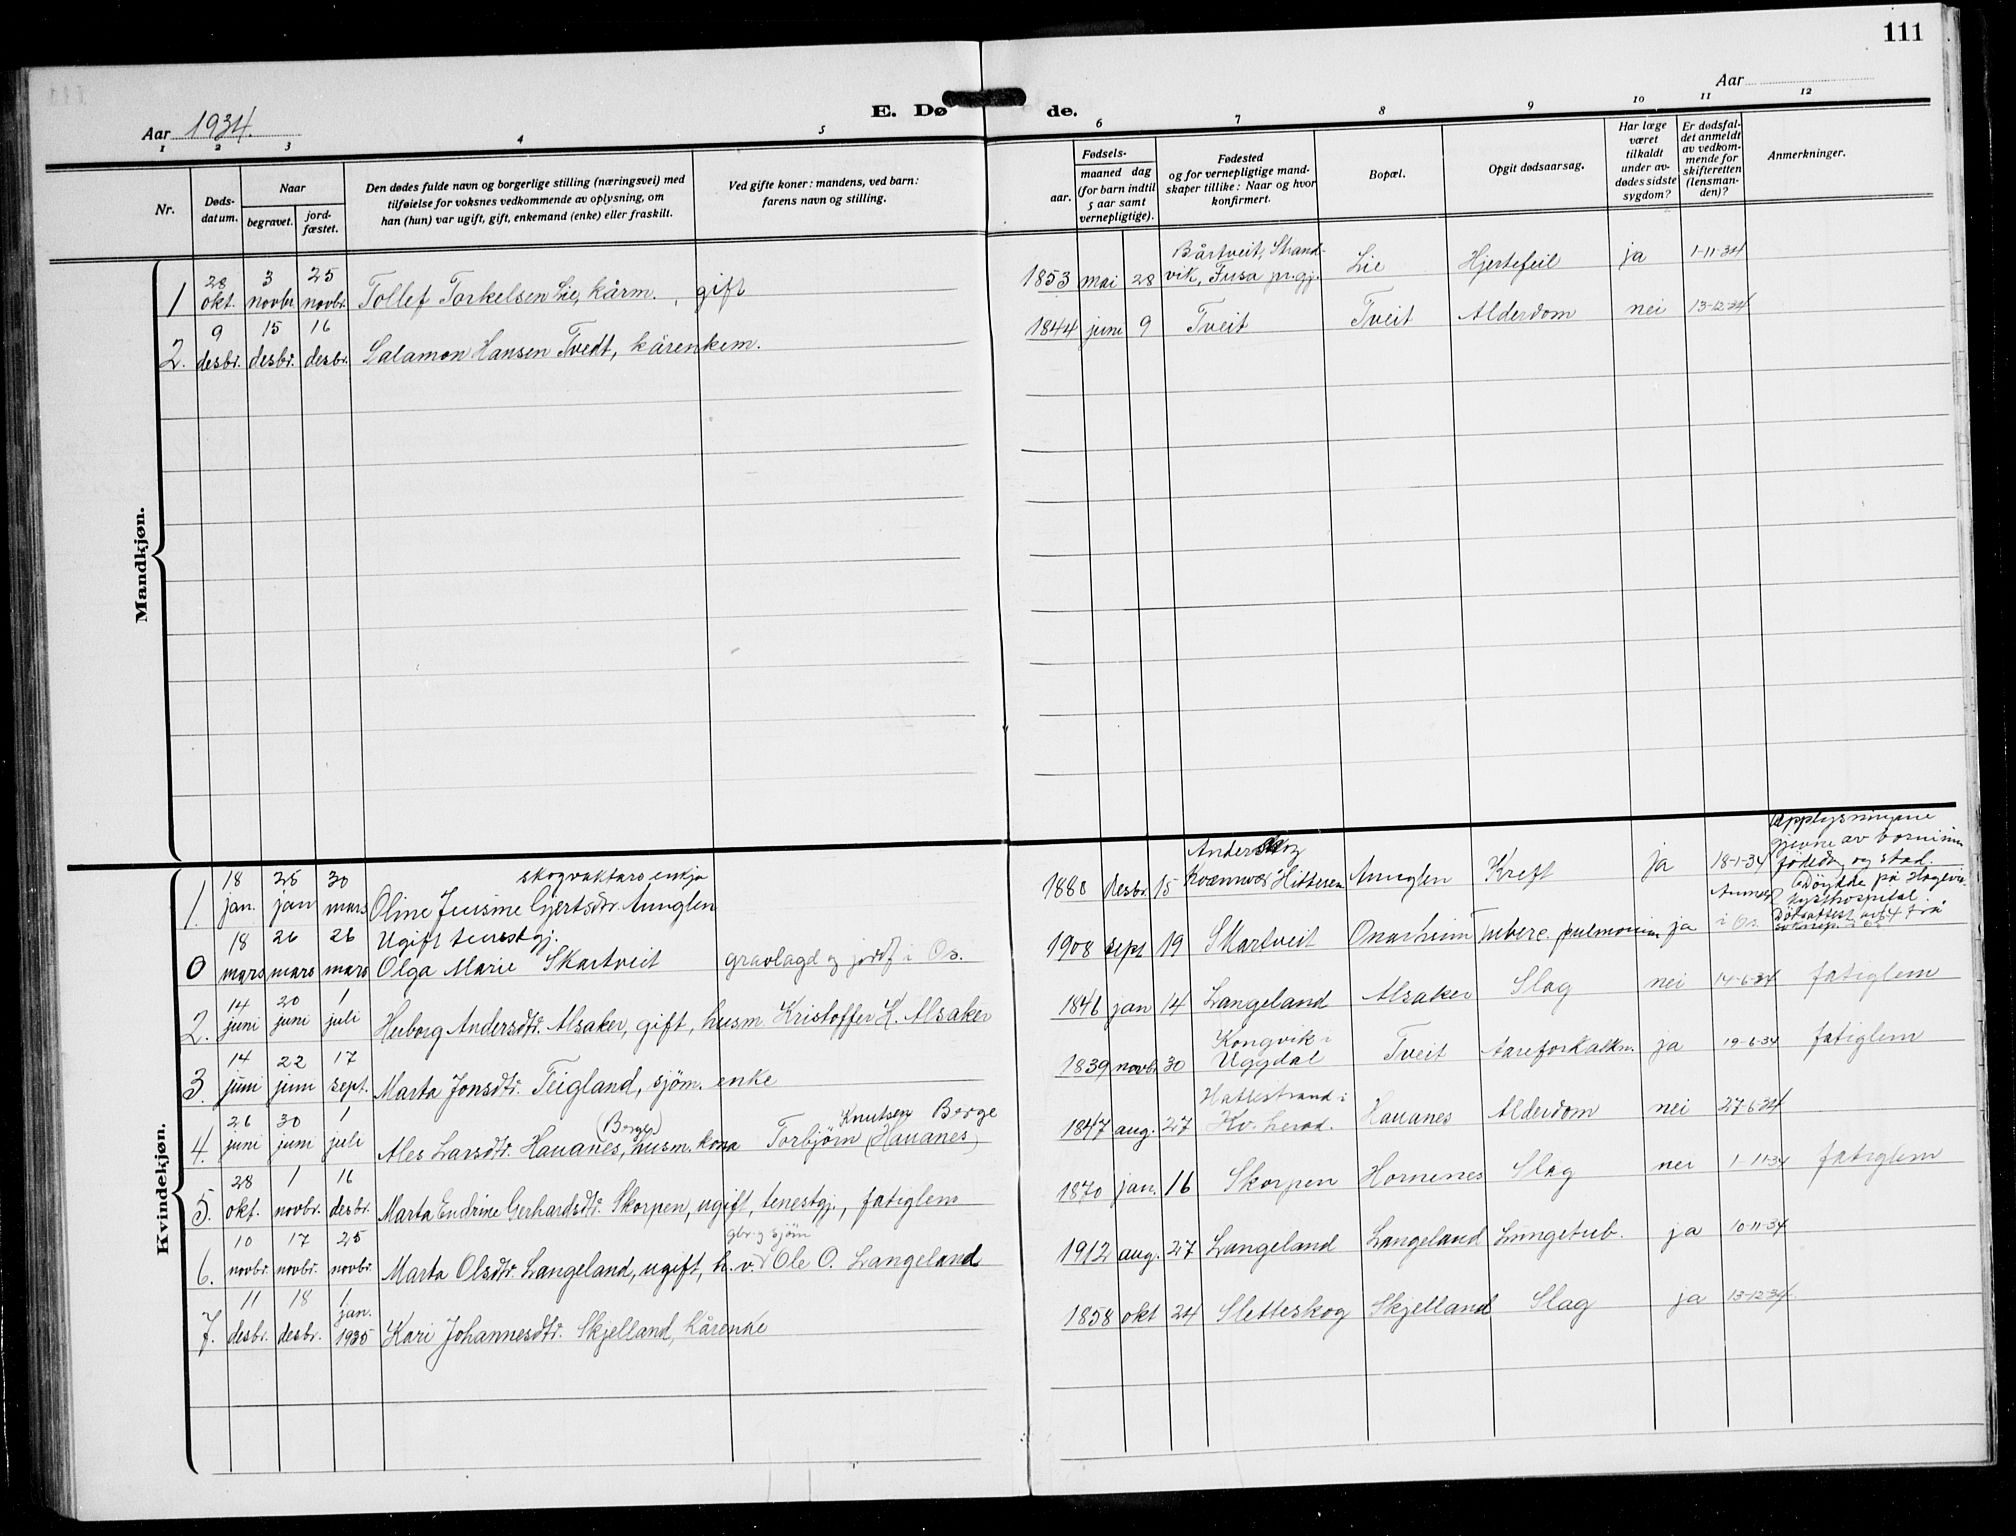 111
Aar 1934.
E. Dø de.
Aar
1 2 3 4 5 6 7 8 9 10 11 12
Nr.
Døds-datum.
Naar
begravet.
jord-fæstet.
Den dødes fulde navn og borgerlige stilling (næringsvei) med
tilføielse for voksnes vedkommende av oplysning, om
han (hun) var ugift, gift, enkemand (enke) eller fraskilt.
Ved gifte koner: mandens, ved barn:
farens navn og stilling.
Fødsels-
aar.
maaned dag
(for barn indtil
5 aar samt
vernepligtige).
Fødested
og for vernepligtige mand-
skaper tillike: Naar og hvor
konfirmert.
Bopæl.
Opgit dødsaarsag.
Har læge
været
tilkaldt
under av-
dødes sidste
sygdom?
Er dødsfal-
det anmeldt
av vedkom-
mende for
skifteretten
(lensman-
den)?
Anmerkninger.
Mandkjøn.
1 28 okt. 3 novbr 25 novbr. Tollef Torkelsen Lie, kårm., gift 1853 mai 28 Bårtveit, Strand-
vik, Fusa pr.gj. Lie Hjertefeil ja 1-11-34
2. 9 desbr. 15 desbr. 16 desbr. Salamon Hansen Tvedt, kårenkem. 1844 juni 9 Tveit Tveit Alderdom nei 13-12-34
Kvindekjøn.
1. 18 jan. 26 jan 30 mars skogvaktars enkja
Oline Jensine Gjertsdtr. Aunglen 1880 desbr. 15 Hitteren Kreft ja 18-1-34
0 18 mars 26 mars 26 mars Ugift tenestgj.
Olga Marie Skartveit gravlagd og jordf i Os. 1908 sept 19 Skartveit Onarheim Tuberc. pulmonum ja i Os.
2. 14 juni 20 juni 1 juli Herborg Andersdtr. Alsaker, gift, husm. Kristoffer K. Alsaker 1846 jan 14 Langeland Alsaker Slag nei 14-6-34 fatiglem
3. 14 juni 22 juni 17 sept. Marta Jonsdtr. Teigland, sjøm. enke 1839 novbr. 30 Kongvik i
Uggdal Tveit Aareforkalkn. ja 19-6-34 fatiglem
4. 26 juni 30 juni 1 juli Ales Larsdtr. Hauanes, (Berge) husm. kona Torbjørn Knutsen Berge (Hauanes) 1847 aug. 27 Hattestrand i
Kv. herad. Hauanes Alderdom nei 27-6-34
5. 28 okt. 1 novbr. 16 desbr. Marta Endrine Gerhardsdtr. Skorpen, ugift, tenestgj., fatiglem 1870 jan. 16 Skorpen Hornenes Slag nei 1-11-34 fatiglem
6. 10 novbr. 17 novbr. 25 novbr. Marta Olsdtr. Langeland, ugift, h. v. gbr. og sjøm Ole O. Langeland 1912 aug. 27 Langeland Langeland Lungetub. ja 10-11-34
7. 11 desbr. 18 desbr. 1 jan. 1935 Kari Johannesdtr. Skjelland, kårenke 1858 okt 24 Sletteskog Skjelland Slag ja 13-12-34.